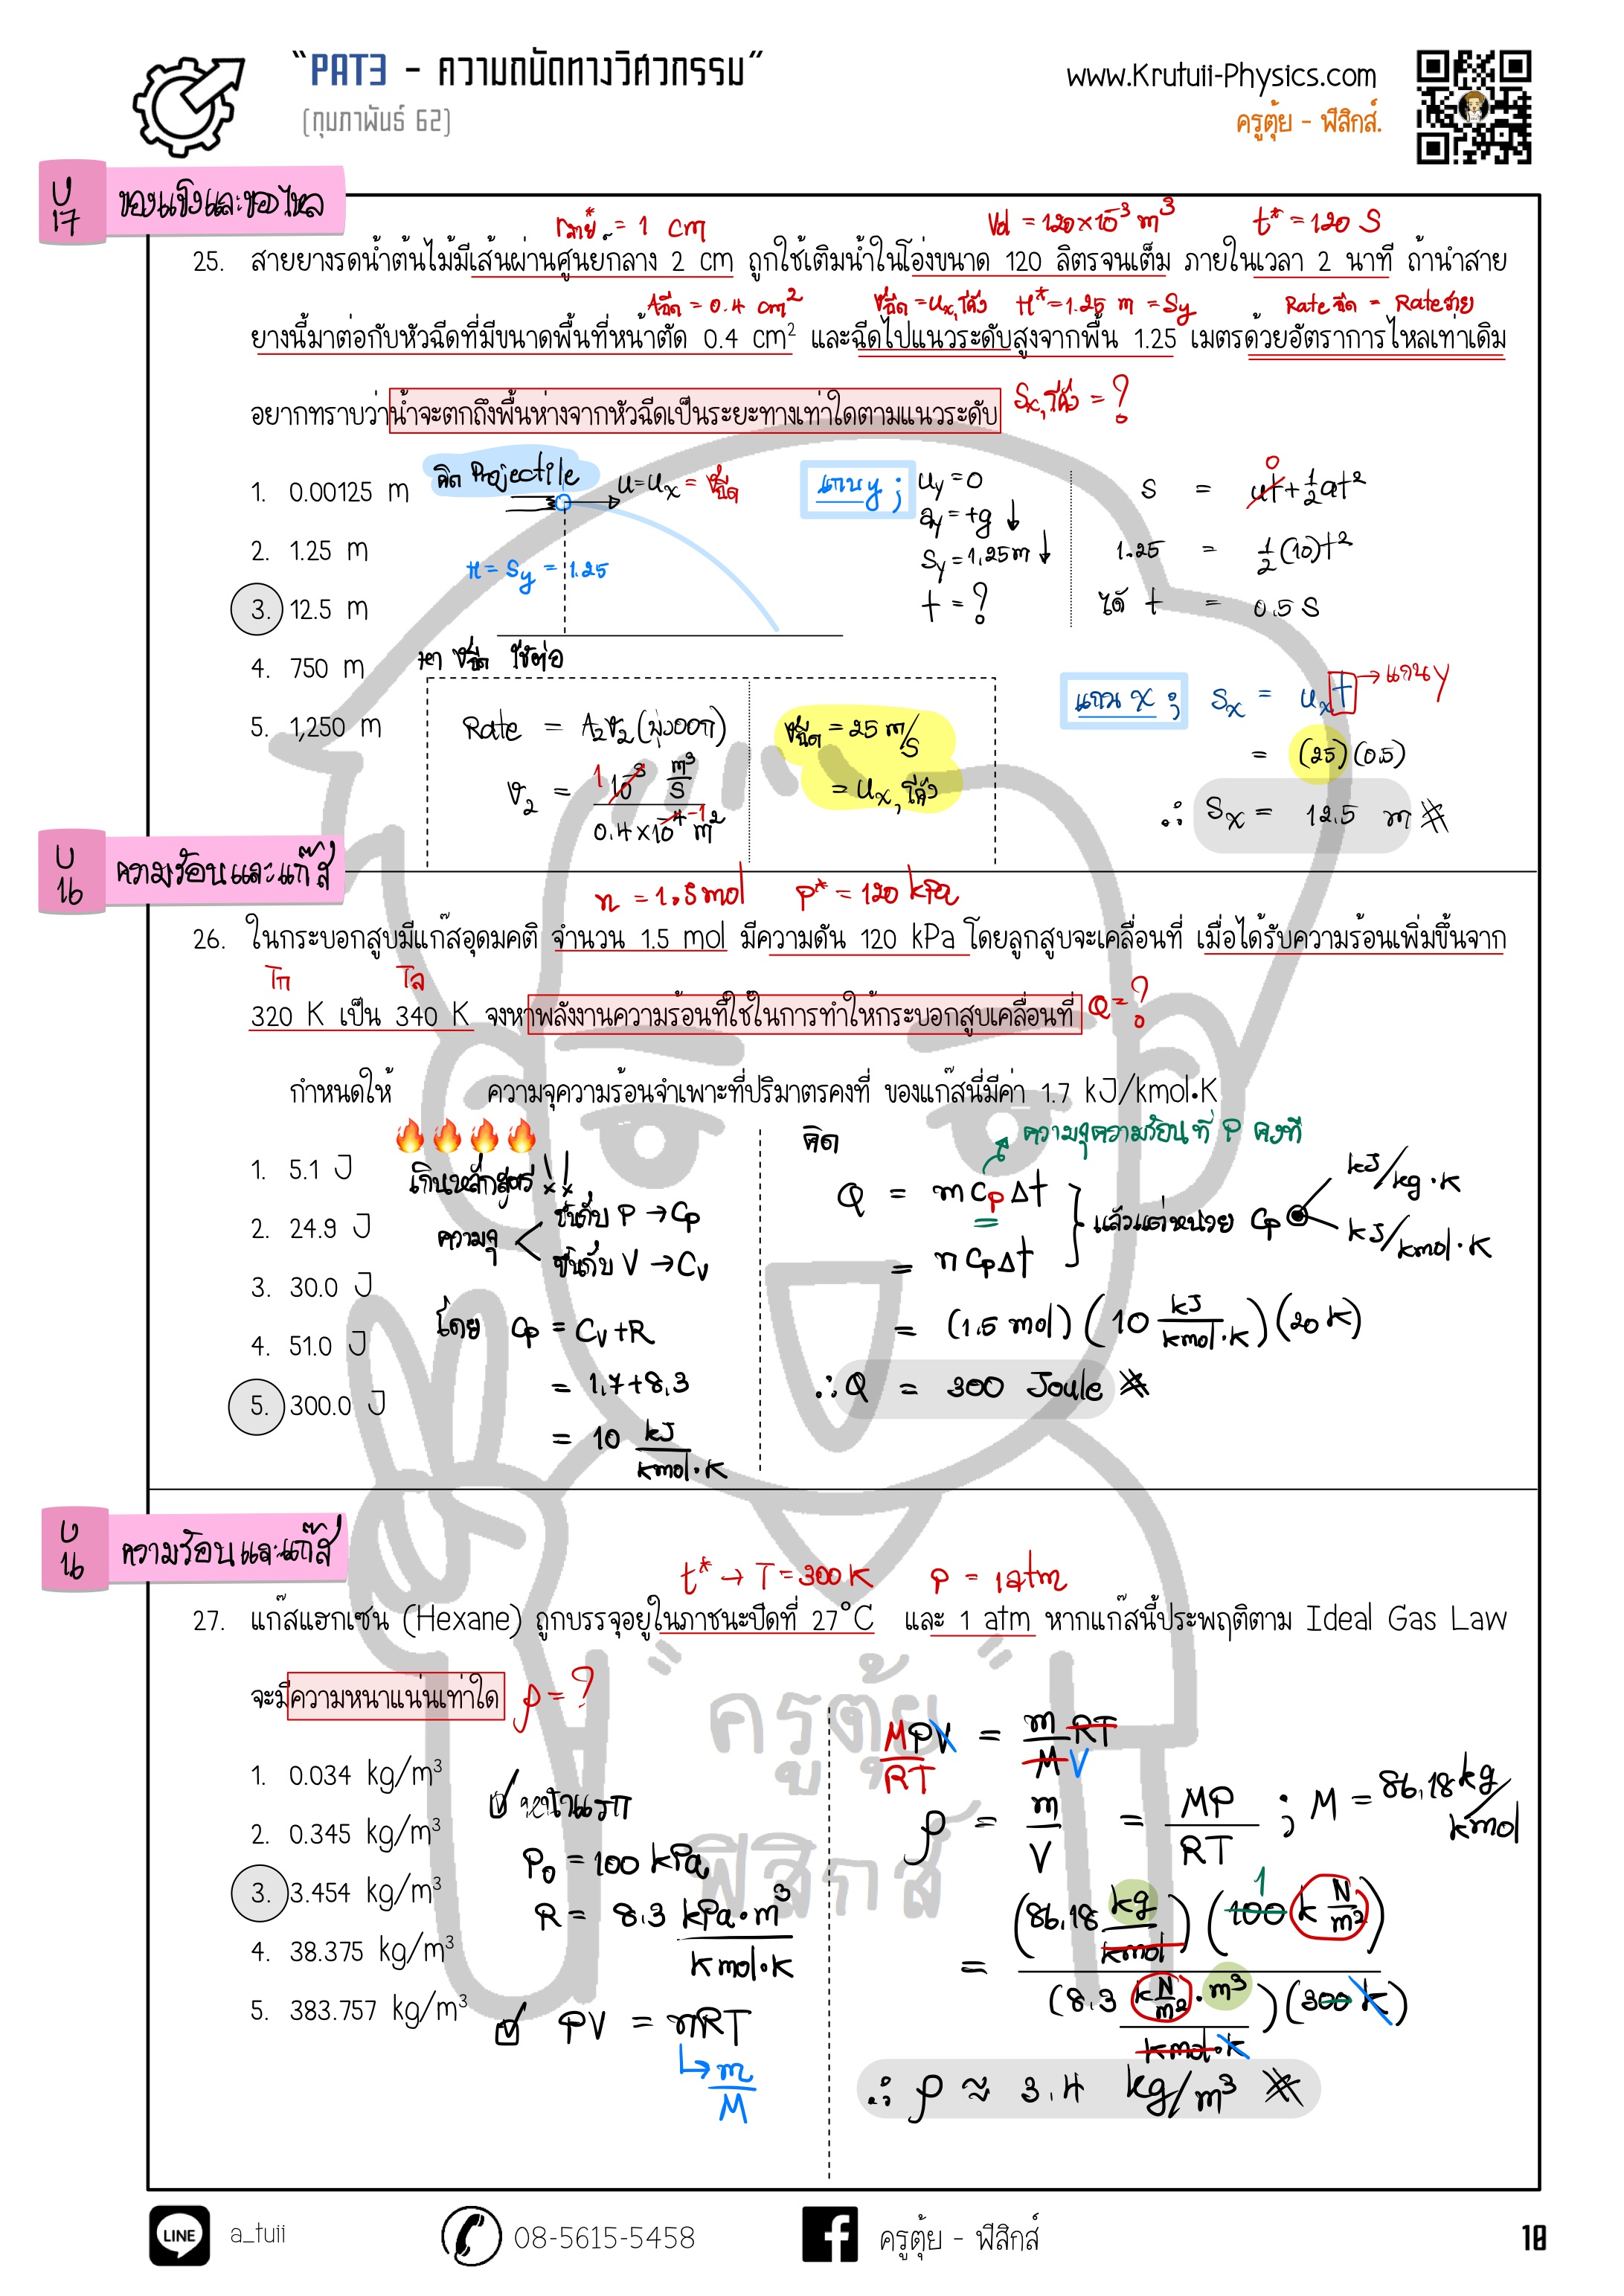 "PAT3 - ความถนัดทางวิศวกรรม"
(กุมภาพันธ์ 62)
www.Krutuii-Physics.com
ครูตุ้ย - ฟิสิกส์.
บ 17 ของแข็งและของไหล
Vol = 120×10⁻³ m³
t* = 120 S
25. สายยางรดน้ำต้นไม้มีเส้นผ่านศูนย์กลาง 2 cm ถูกใช้เติมน้ำในโอ่งขนาด 120 ลิตรจนเต็ม ภายในเวลา 2 นาที ถ้านำสาย
Aฉีด = 0.4 cm² vฉีด = uₓ,โค้ง H* = 1.25 m = Sy Rateฉีด = Rateสาย
ยางนี้มาต่อกับหัวฉีดที่มีขนาดพื้นที่หน้าตัด 0.4 cm² และฉีดไปแนวระดับสูงจากพื้น 1.25 เมตรด้วยอัตราการไหลเท่าเดิม
อยากทราบว่าน้ำจะตกถึงพื้นห่างจากหัวฉีดเป็นระยะทางเท่าใดตามแนวระดับ Sx,โค้ง = ?
1. 0.00125 m
2. 1.25 m
3. 12.5 m
4. 750 m
5. 1,250 m
คิด Projectile
u = uₓ = vฉีด
H = Sy = 1.25
แกน y ;
uy = 0
ay = +g ↓
Sy = 1.25 m ↓
t = ?
S = ut + ½at²
0
1.25 = ½(10)t²
ได้ t = 0.5 S
หา vฉีด ใช้ต่อ
Rate = A₂v₂ (พุ่งออก)
v₂ = 1 10⁻³ m³/S / 0.4×10⁻⁴ m² -1
vฉีด = 25 m/S
= uₓ,โค้ง
แกน x ; Sx = uₓt → แกน y
= (25)(0.5)
∴ Sx = 12.5 m #
บ 16 ความร้อนและแก๊ส
n = 1.5 mol P* = 120 kPa
26. ในกระบอกสูบมีแก๊สอุดมคติ จำนวน 1.5 mol มีความดัน 120 kPa โดยลูกสูบจะเคลื่อนที่ เมื่อได้รับความร้อนเพิ่มขึ้นจาก
Tก Tล
320 K เป็น 340 K จงหาพลังงานความร้อนที่ใช้ในการทำให้กระบอกสูบเคลื่อนที่ Q = ?
กำหนดให้ ความจุความร้อนจำเพาะที่ปริมาตรคงที่ ของแก๊สนี่มีค่า 1.7 kJ/kmol•K
1. 5.1 J
2. 24.9 J
3. 30.0 J
4. 51.0 J
5. 300.0 J
🔥🔥🔥🔥
เกินหลักสูตร !!
ความจุ
ขึ้นกับ P → Cp
ขึ้นกับ V → Cv
โดย Cp = Cv + R
= 1.7 + 8.3
= 10 kJ/kmol·K
คิด
ความจุความร้อนที่ P คงที่
Q = mCpΔt
= nCpΔt
แล้วแต่หน่วย Cp
kJ/kg·K
kJ/kmol·K
= (1.5 mol)(10 kJ/kmol·K)(20 K)
∴ Q = 300 Joule #
บ 16 ความร้อนและแก๊ส
t* → T = 300 K P = 1 atm
27. แก๊สแฮกเซน (Hexane) ถูกบรรจุอยู่ในภาชนะปิดที่ 27°C และ 1 atm หากแก๊สนี้ประพฤติตาม Ideal Gas Law
จะมีความหนาแน่นเท่าใด ρ = ?
1. 0.034 kg/m³
2. 0.345 kg/m³
3. 3.454 kg/m³
4. 38.375 kg/m³
5. 383.757 kg/m³
☑ หน้าแรก
P₀ = 100 kPa
R = 8.3 kPa·m³/kmol·K
☑ PV = nRT
↳ m/M
M/RT PV = m/M RT V
ρ = m/V = MP/RT ; M = 86.18 kg/kmol
= (86.18 kg/kmol)(100 k N/m²) 1
(8.3 k N/m² · m³ / kmol·K)(300 K)
∴ ρ ≈ 3.4 kg/m³ #
" ครูตุ้ย "
ฟิสิกส์
LINE a_tuii
08-5615-5458
ครูตุ้ย - ฟิสิกส์
10